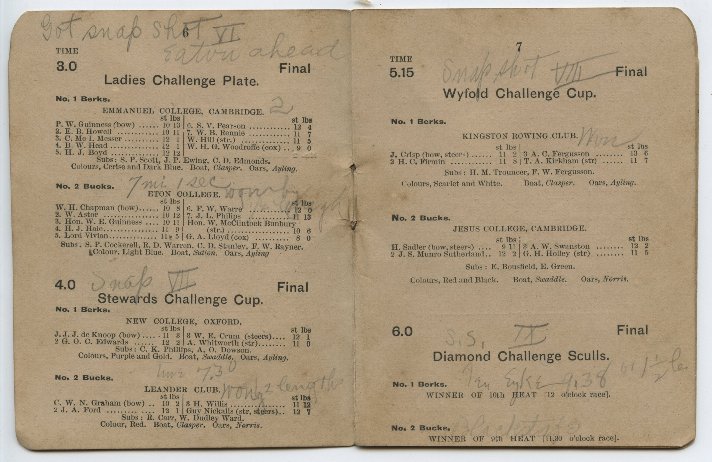 Got snap shot VI
6
Eaton ahead
TIME
3.0 Final
Ladies Challenge Plate.
No. 1 Berks.
EMMANUEL COLLEGE, CAMBRIDGE. 2
st lbs st lbs
P. W. Guinness (bow) ...... 10 13 6. S. V. Pearson ............ 12 4
2. E. B. Howell ............ 10 11 7. W. B. Rennie ............ 11 7
3. C. Mc I. Messer ......... 12 1 W. Hill (str.) ............ 11 5
4. B. W. Head ............ 12 1 W. H. G. Woodroffe (cox) .. 9 0
5. H. J. Boyd ............ 12 12
Subs: S. P. Scott, J. P. Ewing, C. D. Edmonds.
Colours, Cerise and Dark Blue. Boat, Clasper. Oars, Ayling.
No. 2 Bucks. 7 mi 1 sec won by
ETON COLLEGE.
st lbs st lbs
W. H. Chapman (bow) ...... 10 8 6. F. W. Warre
2. W. Astor ............ 10 12 7. J. L. Philips
3. Hon. W. E. Guinness .... 10 11 Hon. W. McClintock Bunbury
4. H. J. Hale ............ 11 9 (str.) ............ 10 6
5. Lord Vivian ............ 11 5 G. A. Lloyd (cox) ........ 8 0
Subs: S. P. Cockerell, R. D. Warren, C. D. Stanley, F. W. Rayner.
Colour, Light Blue. Boat, Sutton. Oars, Ayling
Snap VII
4.0 Final
Stewards Challenge Cup.
No. 1 Berks.
NEW COLLEGE, OXFORD.
st lbs st lbs
J. J. J. de Knoop (bow) .... 11 8 3 W. E. Crum (steers).... 12 1
2 G. O. C. Edwards ...... 12 2 A. Whitworth (str) ........ 11 0
Subs: C. K. Phillips, A. O. Dowson.
Colours, Purple and Gold. Boat, Swaddle. Oars, Ayling.
time 7.30
No. 2 Bucks. won 2 lengths
LEANDER CLUB.
st lbs st lbs
C. W. N. Graham (bow) .. 10 2 3 H. Willis ............ 11 12
2 J. A. Ford ............ 12 1 Guy Nickalls (str, steers).. 12 7
Subs: R. Carr, W. Dudley Ward.
Colour, Red. Boat, Clasper. Oars, Norris.
7
TIME
5.15 Snap shot VIII Final
Wyfold Challenge Cup.
No. 1 Berks.
KINGSTON ROWING CLUB. Won
st lbs st lbs
J. Crisp (bow, steers) ...... 11 2 3 A. C. Ferguson ........ 13 6
2 H. C. Firmin ............ 11 8 T. A. Kirkham (str) ...... 11 7
Subs: H. M. Trouncer, F. W. Ferguson.
Colours, Scarlet and White. Boat, Clasper. Oars, Ayling.
No. 2 Bucks.
JESUS COLLEGE, CAMBRIDGE.
st lbs st lbs
H. Sadler (bow, steers) .... 9 11 3 A. W. Swanston ........ 12 2
2 J. S. Munro Sutherland.. 12 2 G. H. Holley (str) ........ 11 5
Subs: E. Bousfield, E. Green.
Colours, Red and Black. Boat, Swaddle. Oars, Norris.
6.0 S.S. IX Final
Diamond Challenge Sculls.
No. 1 Berks. Ten Eyke 9.38
WINNER OF 10th HEAT [12 o'clock race].
No. 2 Bucks.
WINNER OF 9th HEAT [11.30 o'clock race].